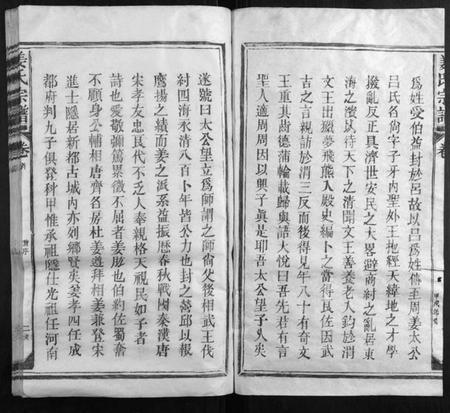 為姓受伯爵封於呂故以呂為姓傳至周姜太公
呂氏名尚字子牙內聖外王地經天緯地之才學
撥亂反正具濟世安民之大畧避商紂之亂居東
海之濱以待天下之清聞文王善養老人釣於渭
文王出獵夢飛熊入殿史編卜之當得良佐因武
古之言親訪於渭三反而後得見年八十有奇文
王重其齒德蒲輪載歸與語大悅曰吾先君有言
聖人適周周因以興子真是耶吾太公望子久矣
遂號曰太公望立為師謂之師尚父後相武王伐
紂四海永清八百卜年皆公力也封之營邱以報
鷹揚之績而姜之派系益振歷春秋戰國秦漢唐
宋孝友忠良代不乏人奉親格天視民如子者
詩也愛敬彌篤累徵不屈者姜肱也伯約佐蜀奮
不顧身公輔相唐齊名房杜姜遵拜相姜兼登宋
進士隱居新都古城內亦列鄉賢矣姜孝四任成
都府判九子俱登科甲惟承祖隱仕光祖任河南
姜氏宗譜
卷